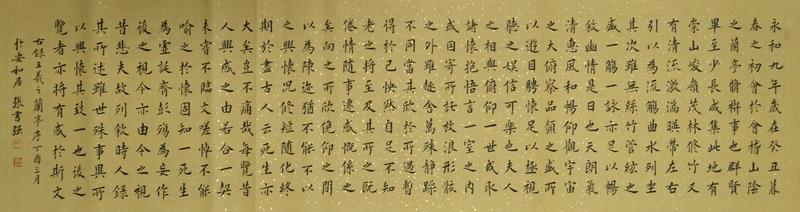 永和九年歲在癸丑暮
春之初會於會稽山陰
之蘭亭脩稧事也群賢
畢至少長咸集此地有
崇山峻嶺茂林修竹又
有清流激湍暎帶左右
引以為流觴曲水列坐
其次雖無絲竹管絃之
盛一觴一詠亦足以暢
敘幽情是日也天朗氣
清惠風和暢仰觀宇宙
之大俯察品類之盛所
以遊目騁懷足以極視
聽之娛信可樂也夫人
之相與俯仰一世或取
諸懷抱悟言一室之內
或因寄所託放浪形骸
之外雖趣舍萬殊靜躁
不同當其欣於所遇暫
得於己怏然自足不知
老之將至及其所之既
倦情隨事遷感慨係之
矣向之所欣俛仰之間
以為陳迹猶不能不以
之興懷況修短隨化終
期於盡古人云死生亦
大矣豈不痛哉每覽昔
人興感之由若合一契
未嘗不臨文嗟悼不能
喻之於懷固知一死生
為虛誕齊彭殤為妄作
後之視今亦由今之視
昔悲夫故列敘時人錄
其所述雖世殊事異所
以興懷其致一也後之
覽者亦將有感於斯文
右錄王羲之蘭亭序丁酉三月
於安和居 張書強